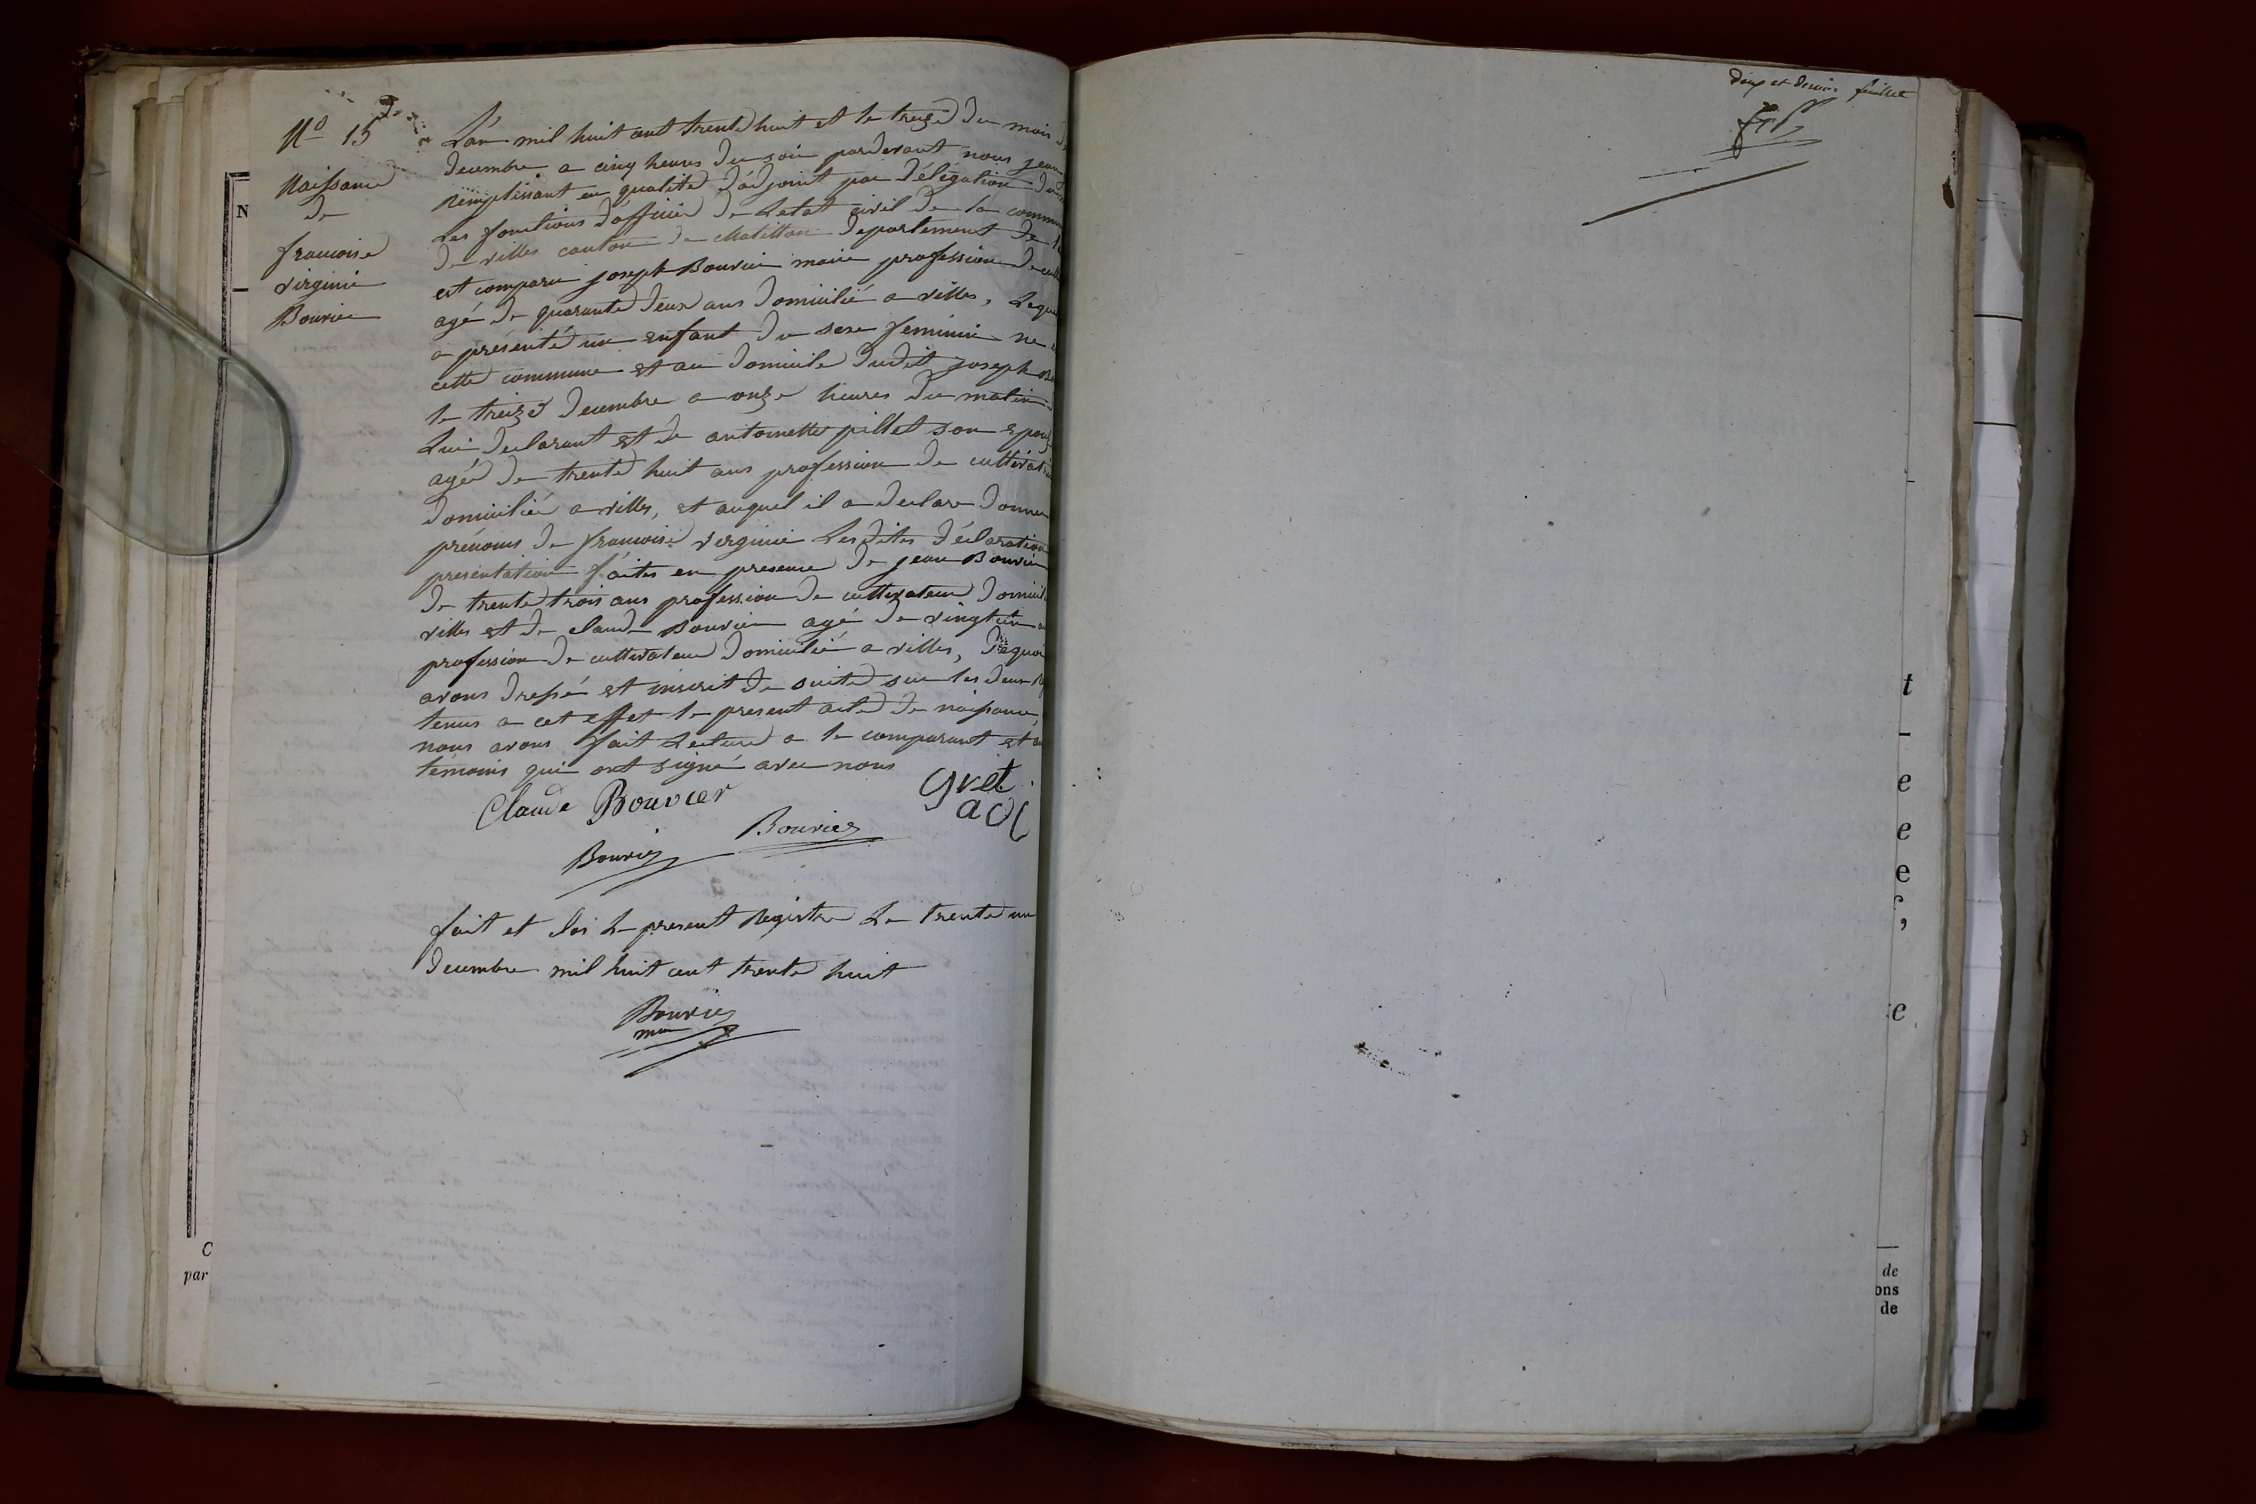 No 15
Naissance
de
francoise
virginie
Bouvier
L'an mil huit cent trente huit et le treize du mois de
decembre a cinq heures du soir pardevant nous jean
remplissant en qualité d'adjoint par délégation
Les fonctions d'officier de Letat civil de la commune
de villes canton de chatillon departement de
est comparu joseph Bouvier maire profession de
agé de quarante deux ans domicilié a villes, Lequel
a présenté un enfant du sexe feminin ne
cette commune et au domicile dudit joseph
le treize decembre a onze heures du matin
Lui declarant et de antoinette pillet son epouse
agée de trente huit ans profession de
domiciliée a villes, et auquel il a declare donner
prénoms de francoise virginie Lesdites déclaration
presentation faites en presence de jean Bouvier
de trente trois ans profession de cultivateur
villes et de claude Bouvier agé de vingt un
profession de cultivateur domicilié a villes, Dequoi
avons dressé et inscrit de suite sur les deux
tenus a cet effet le present acte de naissance,
nous avons fait Lecture a le comparant et
témoins qui ont signé avec nous
Claude Bouvier
gret
Bouvier
Bouvier
fait et clos Le present Registre Le trente un
decembre mil huit cent trente huit
Bouvier
feuillet
N
C
par
t
e
e
e
,
e
de
ons
de